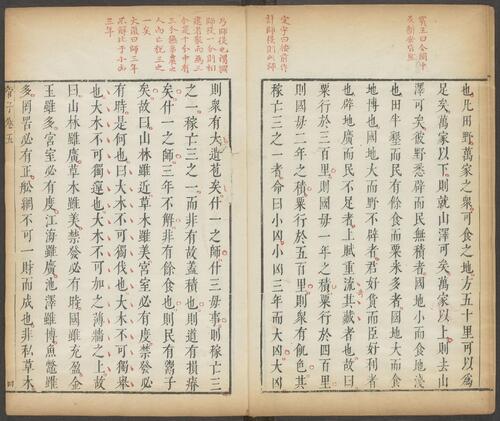 及新安皆然
也凡田野萬家之衆可食之地方五十里可以爲
足矣萬家以下則就山澤可矣萬家以上則去山
澤可矣彼野悉辟而民無積者國地小而食地淺
也田半墾而民有餘食而粟米多者國地大而食
地博也國地大而野不辟者君好貨而臣好利者
也辟地廣而民不足者上賦重流其藏者也故曰
粟行於三百里則國毋一年之積粟行於四百里
則國毋二年之積粟行於五百里則衆有飢色其
稼亡三之一者命曰小凶小凶三年而大凶大凶
定宇曰按前作
計師役則此師
乃師役也謂國
師役一分則相
逮者衆而為三
分是十分中有
三分無事農之
人而亡稅三之
一矣
大復曰師三年
不解比于小凶
三年
則衆有大遺苞矣什一之師什三毋事則稼亡三
之一稼亡三之一而非有故蓋積也則道有損瘠
矣什一之師三年不解非有餘食也則民有鬻子
矣故曰山林雖近草木雖美宮室必有度禁發必
有時是何也曰大木不可獨伐也大木不可獨舉
也大木不可獨運也大木不可加之薄牆之上故
曰山林雖廣草木雖美禁發必有時國雖充盈金
玉雖多宮室必有度江海雖廣池澤雖博魚鱉雖
多罔罟必有正舩網不可一財而成也非私草木
管子卷五